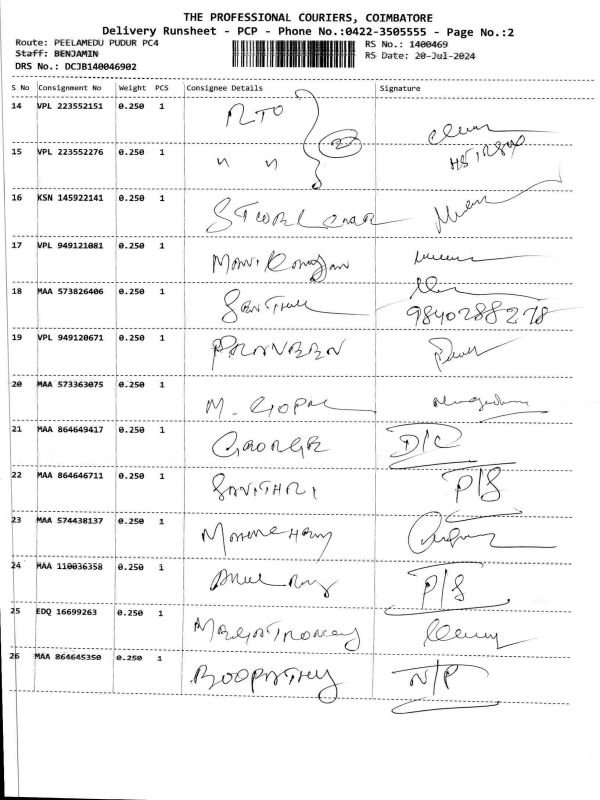 THE PROFESSIONAL COURIERS, COIMBATORE
Delivery Runsheet - PCP - Phone No.:0422-3505555 - Page No.:2
Route: PEELAMEDU PUDUR PC4
RS No.: 1400469
Staff: BENJAMIN
RS Date: 20-Jul-2024
DRS No.: DCJB140046902
S No Consignment No Weight PCS Consignee Details Signature
14 VPL 223552151 0.250 1 RTO 2
15 VPL 223552276 0.250 1 " "
16 KSN 145922141 0.250 1
17 VPL 949121081 0.250 1
18 MAA 573826406 0.250 1 SENTHIL
9840288278
19 VPL 949120671 0.250 1 PRANVEEN
20 MAA 573363075 0.250 1 M. GOPAL
21 MAA 864649417 0.250 1 GEORGE D/C
22 MAA 864646711 0.250 1 SAVITHRI P/S
23 MAA 574438137 0.250 1
24 MAA 110036358 0.250 1 P/S
25 EDQ 16699263 0.250 1
26 MAA 864645350 0.250 1 BOOPATHY N/P